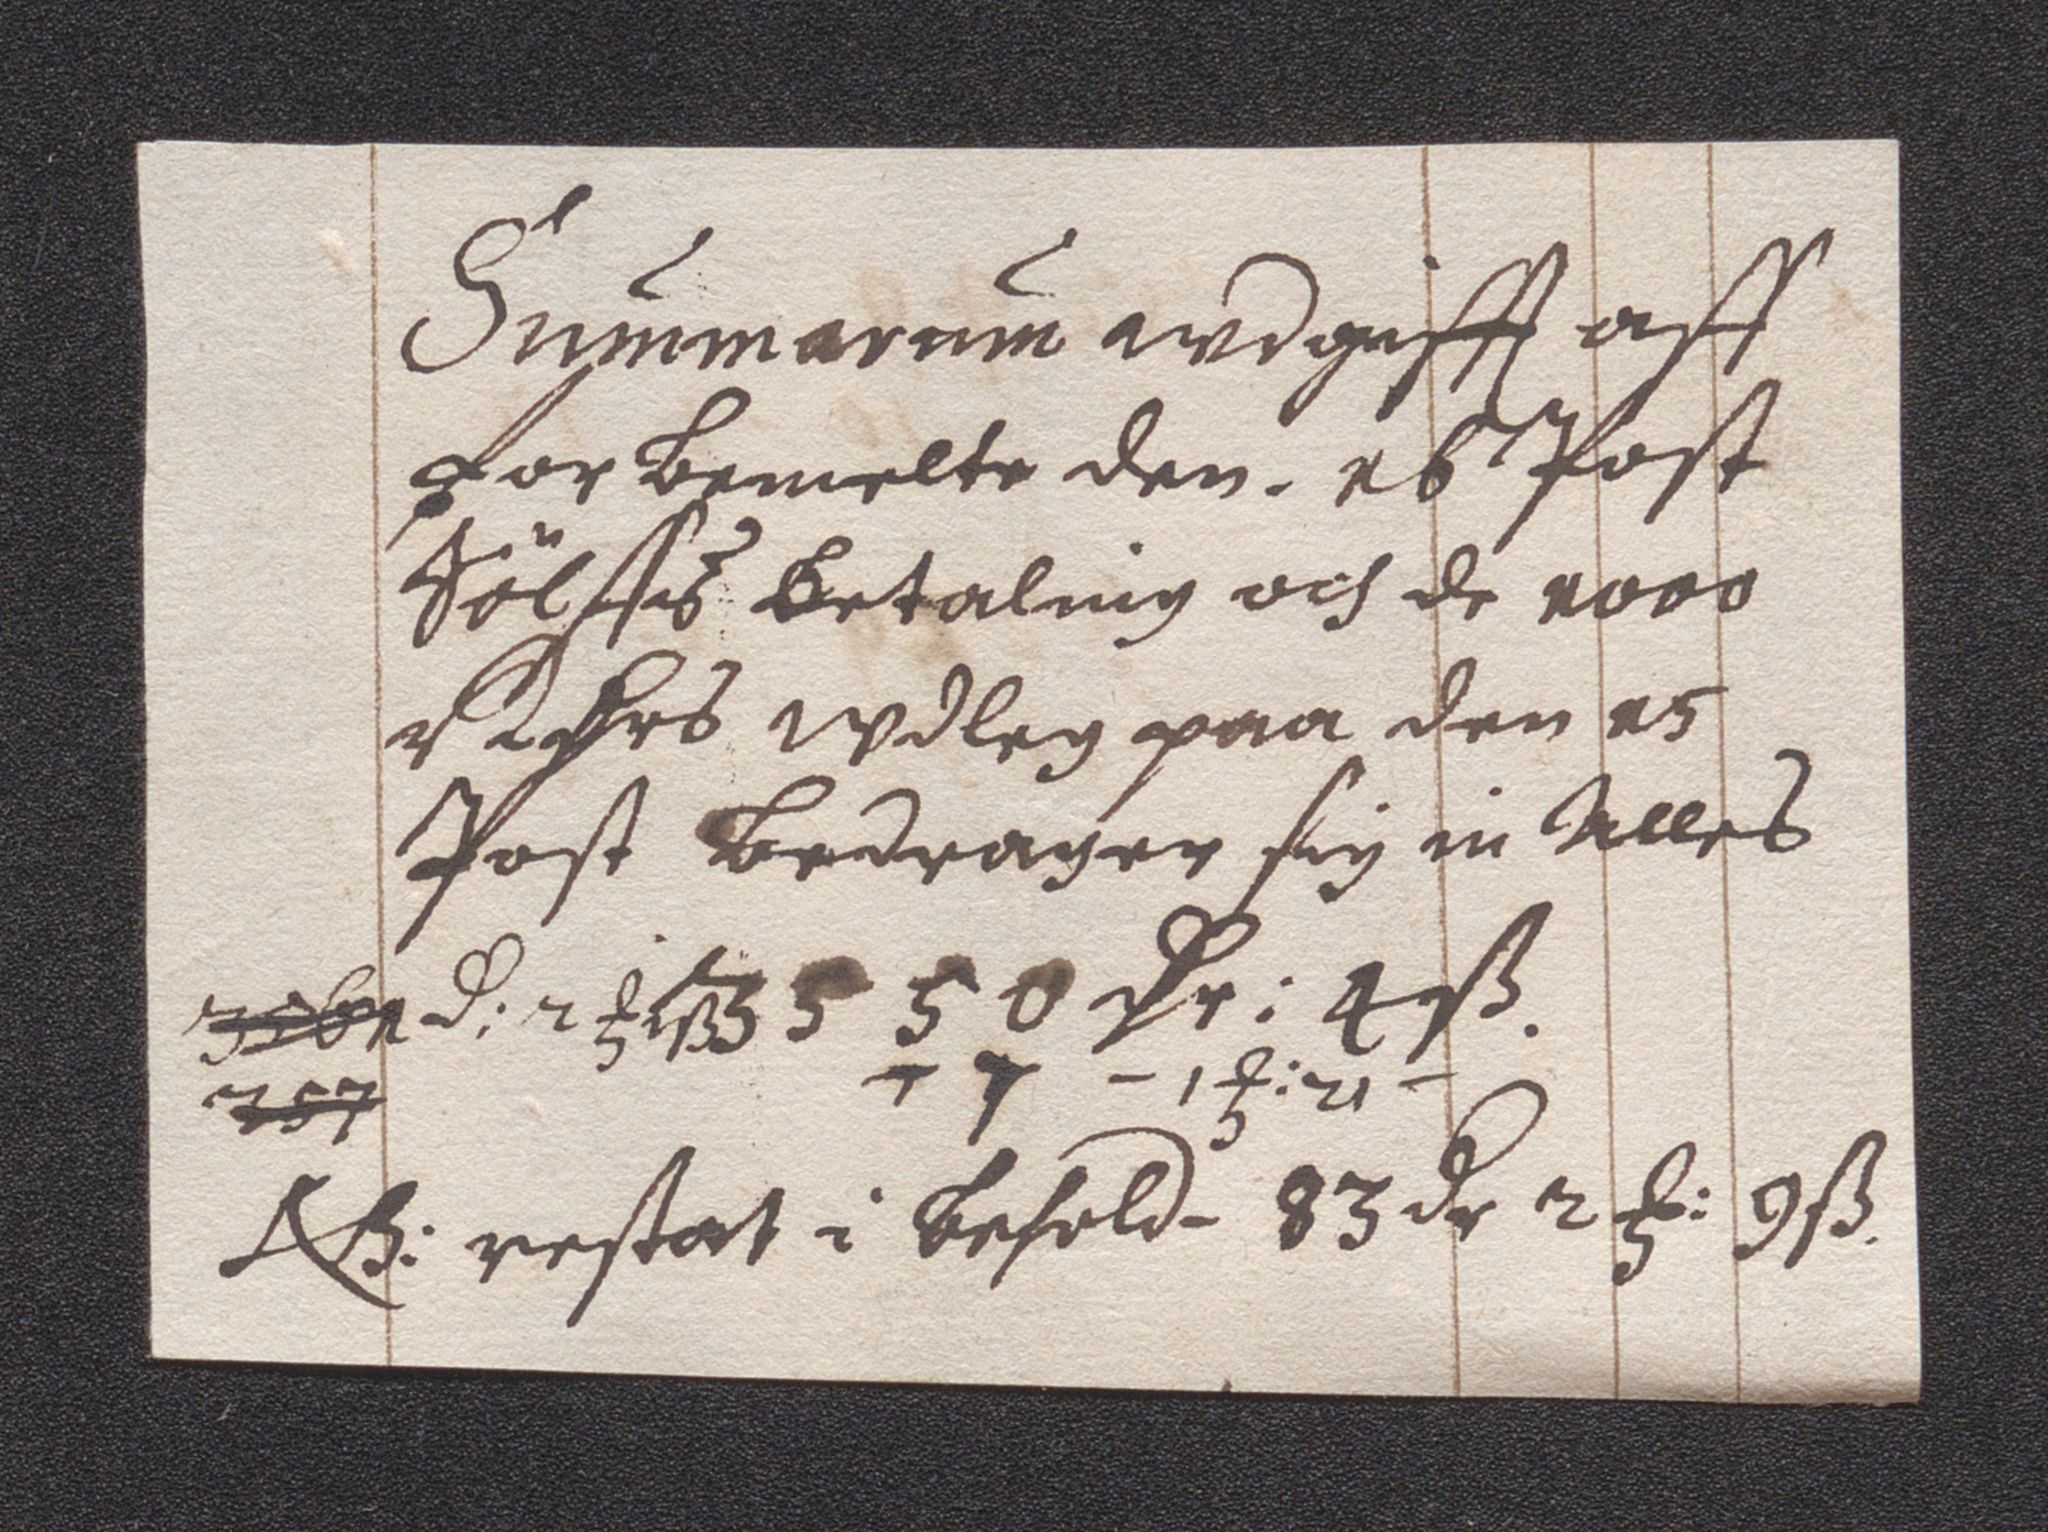 Summarum wdgifft aff
forbemelte den. 16 Post
Sölffs betaling och de 1000
R Dhrs wdleg paa den 15
Post bedrager sig in Alles
d: 2 ₰ 5 5 0 Dr: 4 ß.
7 - 1 ₰: 21 -
NB: restat i besold- 83 dr 2 ₰: 9 ß.